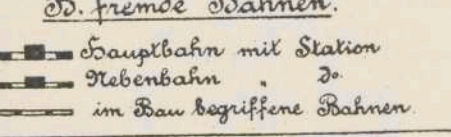 B. fremde Bahnen.
Hauptbahn mit Station
Nebenbahn " Do.
im Bau begriffene Bahnen.